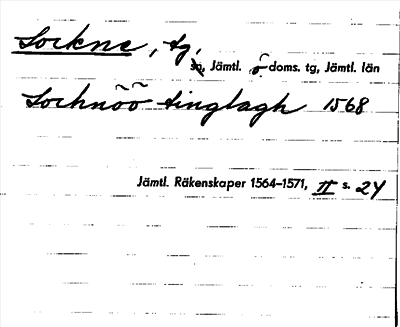 Lockne, tg.
sn, Jämtl. ö doms. tg, Jämtl. län
Lochnöö tinglagh 1568
Jämtl. Räkenskaper 1564–1571, II s. 24